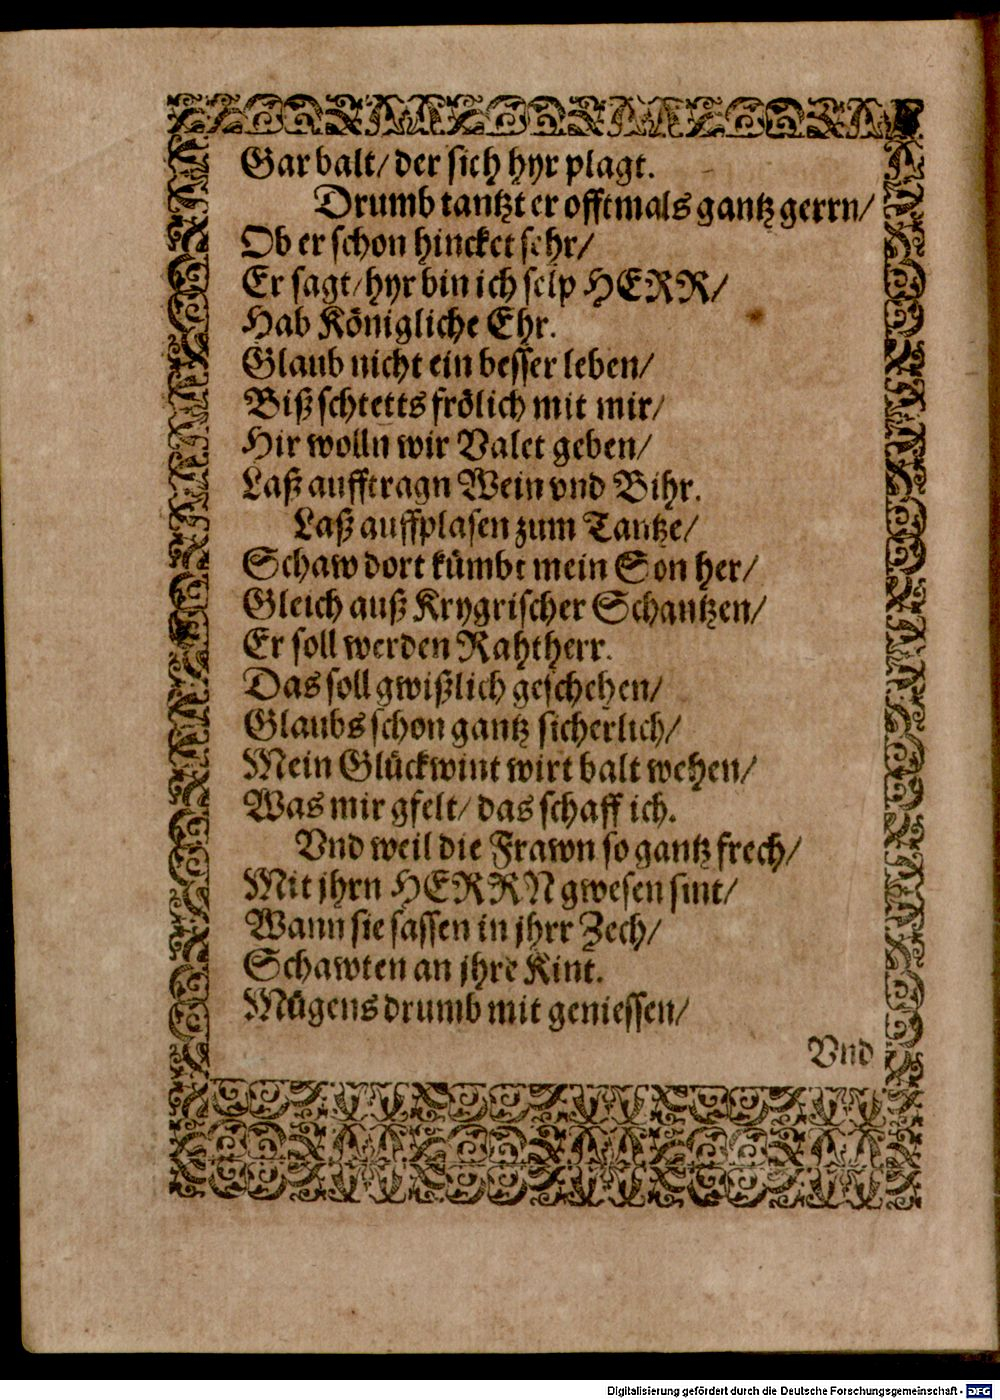 Gar balt/ der sich hyr plagt.
Drumb tantzt er offtmals gantz gerrn/
Ob er schon hincket sehr/
Er sagt/ hyr bin ich selp HERR/
Hab Königliche Ehr.
Glaub nicht ein besser leben/
Biß schtetts frölich mit mir/
Hir wolln wir Valet geben/
Laß aufftragn Wein vnd Bihr.
Laß auffplasen zum Tantze/
Schaw dort kümbt mein Son her/
Gleich auß Krygrischer Schantzen/
Er soll werden Rahtherr.
Das soll gwißlich geschehen/
Glaubs schon gantz sicherlich/
Mein Glückwint wirt balt wehen/
Was mir gfelt/ das schaff ich.
Vnd weil die Frawn so gantz frech/
Mit jhrn HERRN gwesen sint/
Wann sie sassen in jhrr Zech/
Schawten an jhre Kint.
Mügens drumb mit geniessen/
Vnd
Digitalisierung gefördert durch die Deutsche Forschungsgemeinschaft - DFG